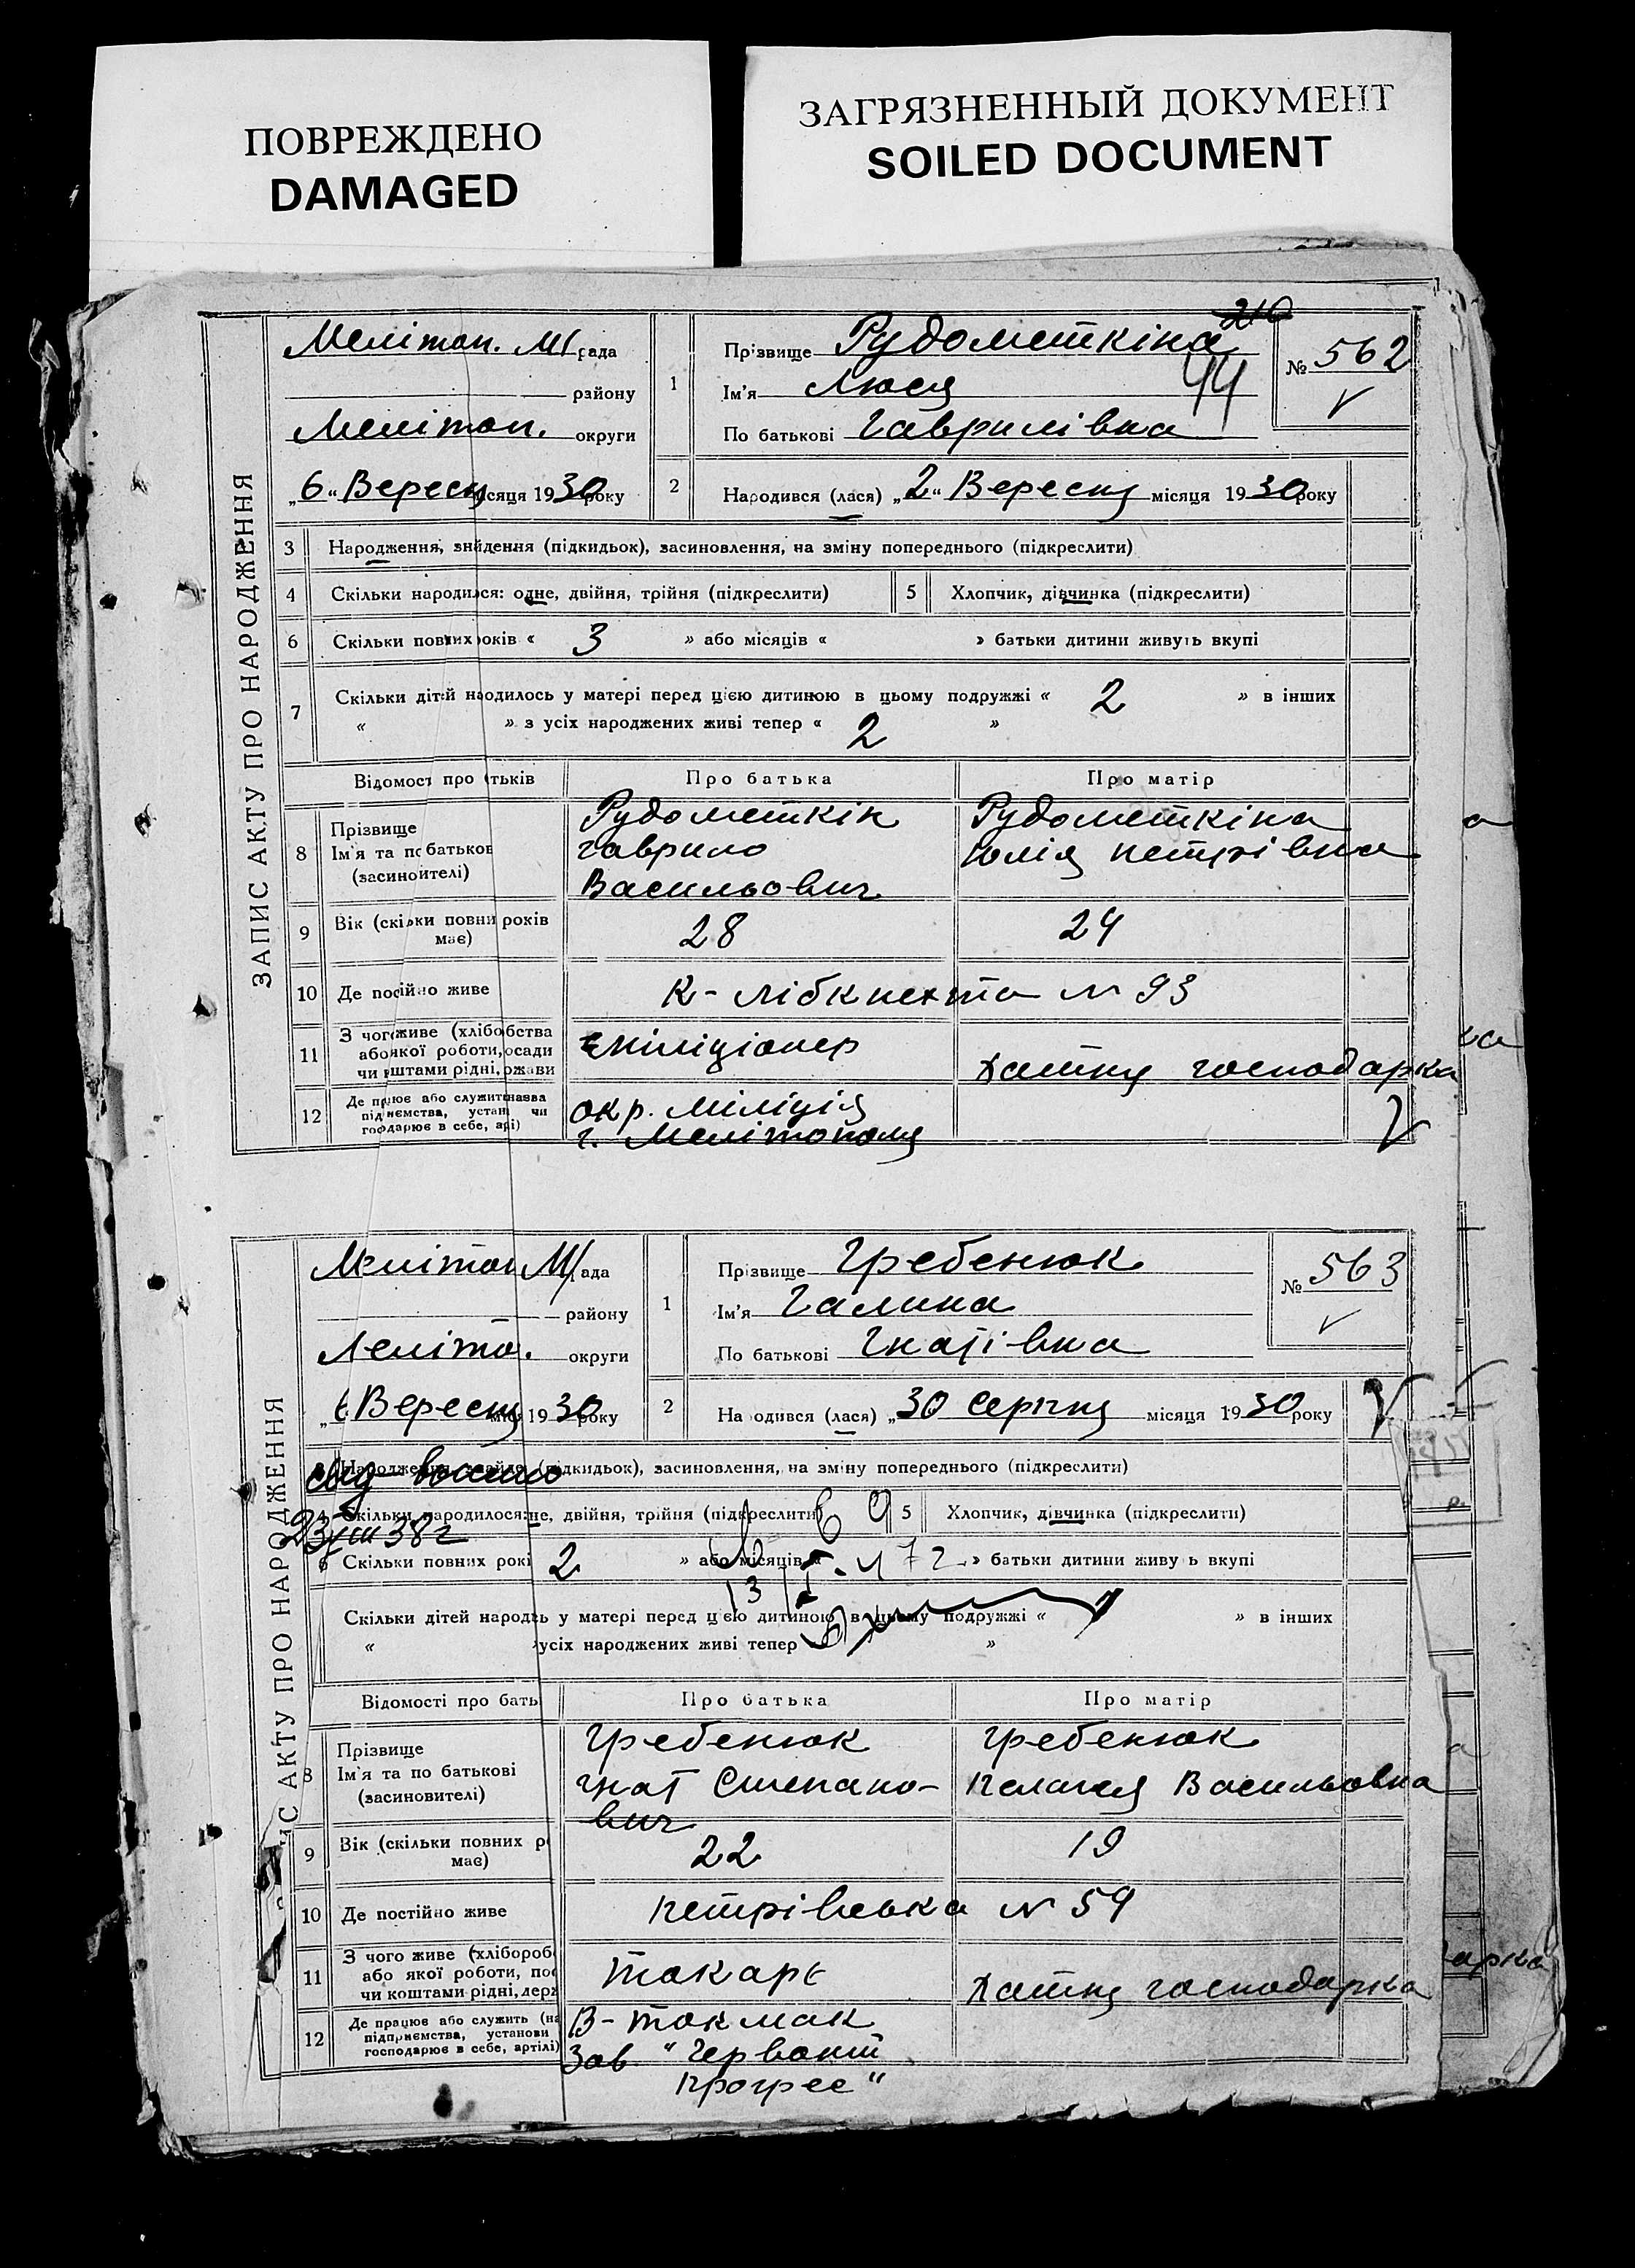 ПОВРЕЖДЕНО
DAMAGED
ЗАГРЯЗНЕННЫЙ ДОКУМЕНТ
SOILED DOCUMENT
ЗАПИС АКТУ ПРО НАРОДЖЕННЯ
Мелітоп. М/рада
району
Мелітоп. округи
„6“ Вересня місяця 1930 року
1
Прізвище Рудометкіна
210
Ім'я Люся
44
По батькові Гаврилівна
№ 562
2 Народився (лася) „2“ Вересня місяця 1930 року
3 Народження, знайдення (підкидьок), засиновлення, на зміну попереднього (підкреслити)
4 Скільки народилося: одне, двійня, трійня (підкреслити) 5 Хлопчик, дівчинка (підкреслити)
6 Скільки повних років « 3 » або місяців « » батьки дитини живуть вкупі
7 Скільки дітей народилось у матері перед цією дитиною в цьому подружжі « 2 » в інших
« » з усіх народжених живі тепер « 2 »
Відомості про батьків Про батька Про матір
8 Прізвище
Ім'я та по батькові
(засиновителі)
Рудометкін
Гаврило
Васильович
Рудометкіна
Юлія Петрівна
9 Вік (скільки повних років
має) 28 24
10 Де постійно живе К-Лібкнехта № 93
11 З чого живе (хліборобства
або якої роботи, посади
чи коштами рідні, держави
Міліціонер
Хатня господарка
12 Де працює або служить (назва
підприємства, установи чи
господарює в себе, артілі)
окр. Міліція
г. Мелітополя
ЗАПИС АКТУ ПРО НАРОДЖЕННЯ
Мелітоп М/рада
району
Меліто. округи
„6 Вересня місяця 1930 року
1
Прізвище Гребенюк
Ім'я Галина
По батькові Гнатівна
№ 563
2 Народився (лася) „30 Серпня місяця 1930 року
Народження, знайдення (підкидьок), засиновлення, на зміну попереднього (підкреслити)
4 Скільки народилося: одне, двійня, трійня (підкреслити) 5 Хлопчик, дівчинка (підкреслити)
23/VIII 38 г
6 Скільки повних років 2 » або місяців « » батьки дитини живуть вкупі
Скільки дітей народилось у матері перед цією дитиною в цьому подружжі « » в інших
« усіх народжених живі тепер »
Відомості про батьків Про батька Про матір
8 Прізвище
Ім'я та по батькові
(засиновителі)
Гребенюк
Гнат Степано-
вич
Гребенюк
Пелагея Васильовна
9 Вік (скільки повних років
має) 22 19
10 Де постійно живе Петрівська № 59
11 З чого живе (хлібороб
або якої роботи, пос
чи коштами рідні, держ
Токарь
Хатня господарка
12 Де працює або служить (на
підприємства, установи
господарює в себе, артілі)
В-Токмак
Зав. "Червоний
прогрес"